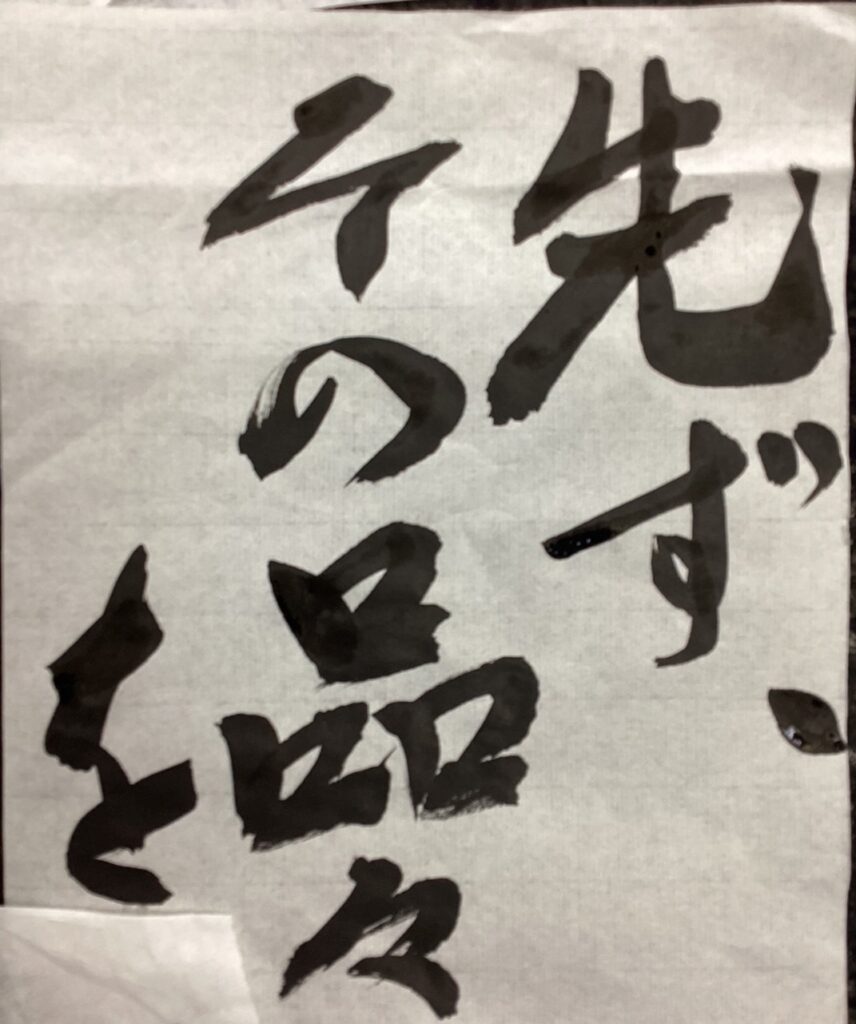 先ず、
その品々
を